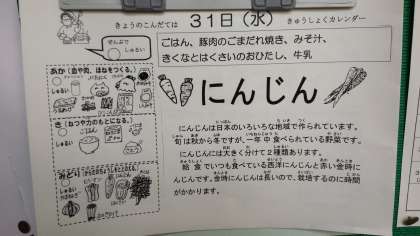 きょうのこんだては 31日（水） きゅうしょくカレンダー
ごはん、豚肉のごまだれ焼き、みそ汁、
きくなとはくさいのおひたし、牛乳
ぜんぶで
しゅるい
あか（血や肉、ほねをつくる。）
しゅるい
にんじん
き（ねつや力のもとになる。）
しゅるい
みどり
しゅるい
にんじんは日本のいろいろな地域で作られています。
旬は秋から冬ですが、一年中食べられている野菜です。
にんじんには大きく分けて2種類あります。
給食でいつも食べている西洋にんじんと赤い金時に
んじんです。金時にんじんは長いので、栽培するのに時間
がかかります。